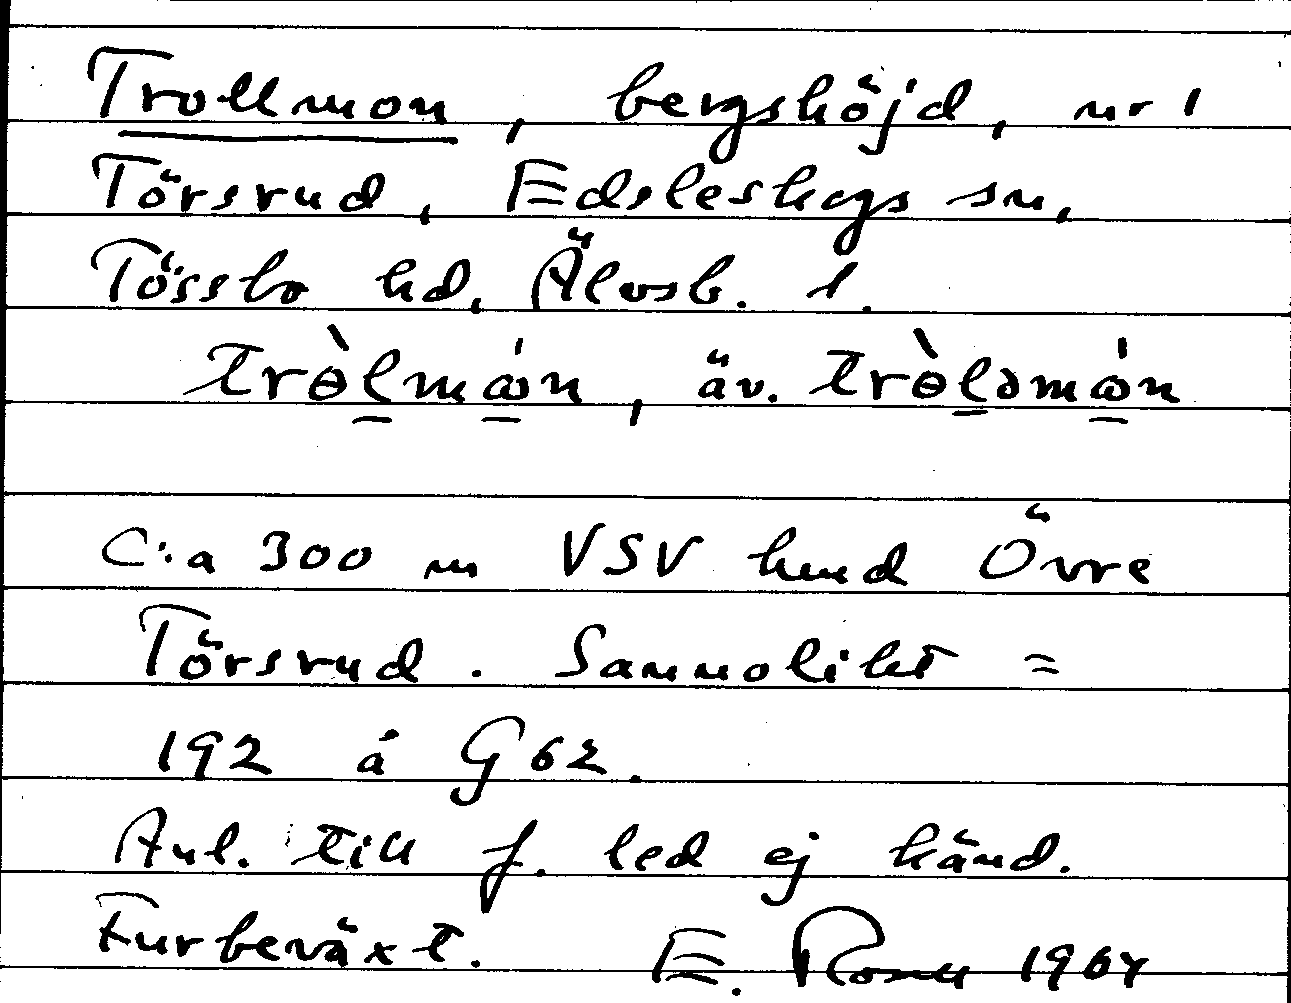 Trollmon, bergshöjd, nr 1
Törsrud, Edsleskogs sn,
Tössbo hd, Älvsb. l.
trɵ̀lmώn, äv. trɵ̀ləmώn
C:a 300 m VSV hmd Övre
Törsrud. Sannolikt =
192 å G62.
Anl. till f. led ej känd.
Furbeväxt. E. 1964